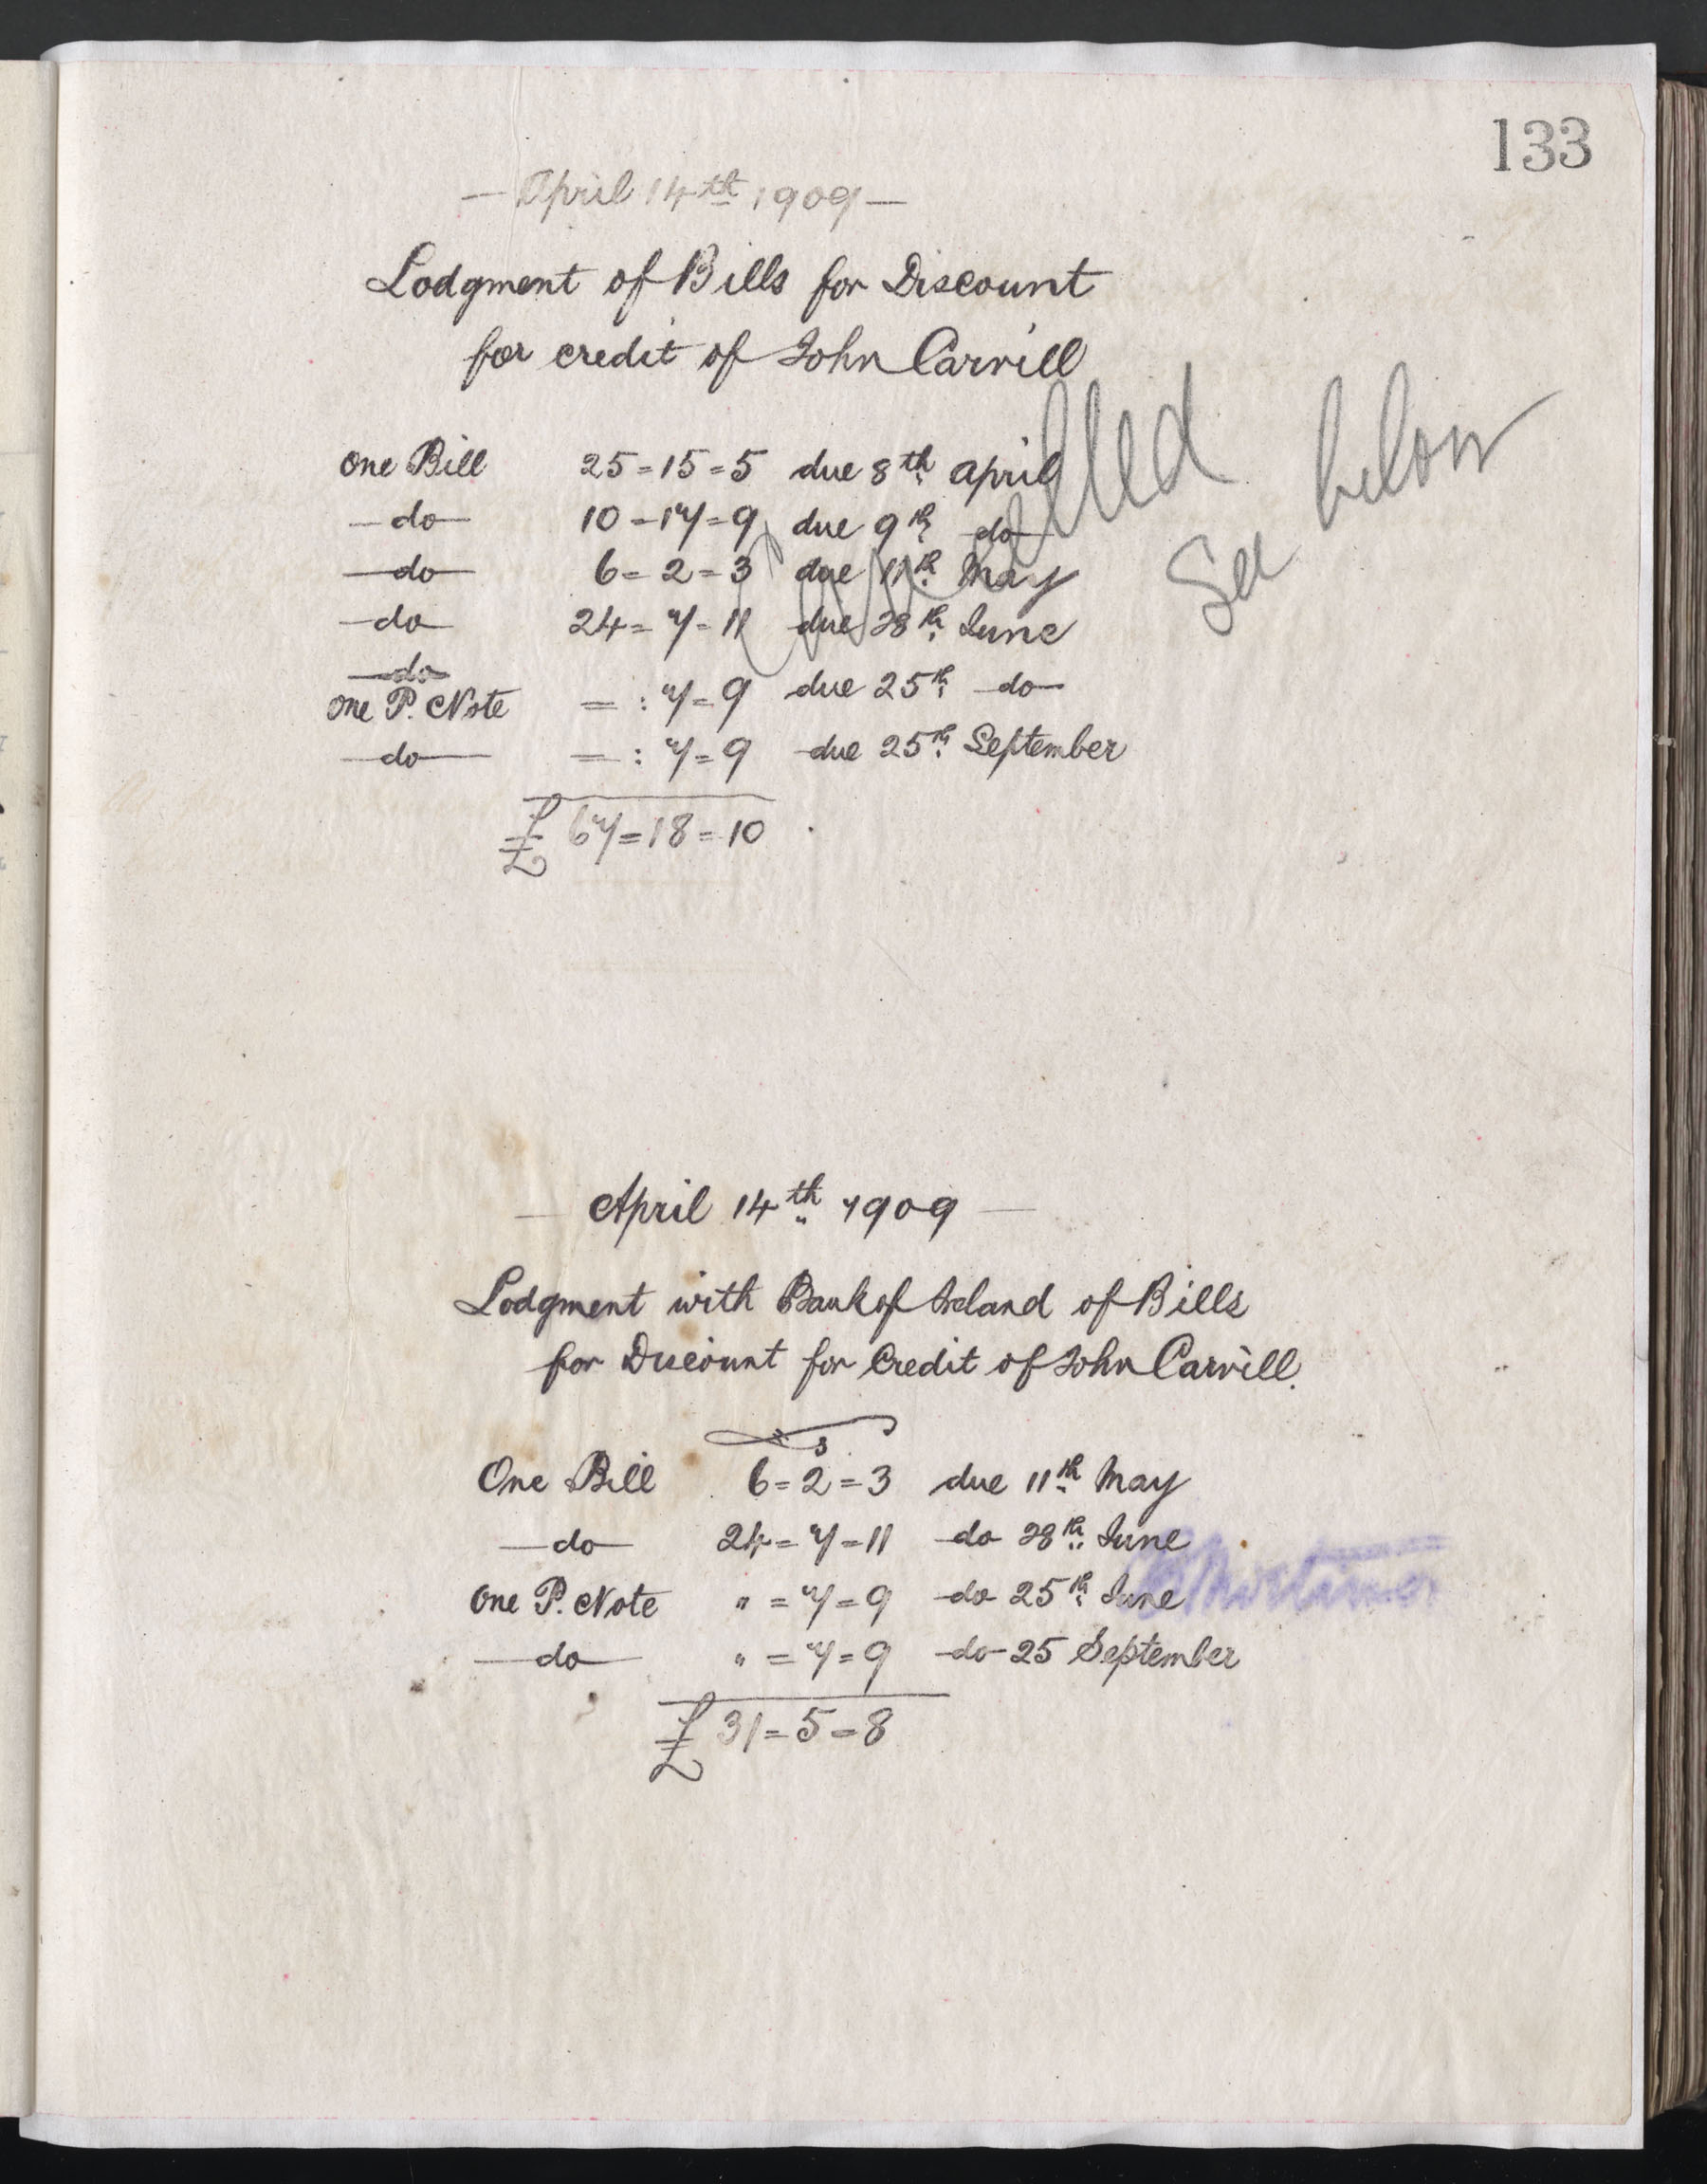 133
— April 14th 1909 —
Lodgment of Bills for Discount
for credit of John Carvill
Cancelled
See below
One Bill 25=15=5 due 8th April
—do— 10=17=9 due 9th do
—do— 6=2=3 due 11th May
—do— 24=7=11 due 28th June
—do—
One P. Note =:7=9 due 25th do
—do— =:7=9 due 25th September
£ 67=18=10
— April 14th 1909 —
Lodgment with Bank of Ireland of Bills
for Discount for Credit of John Carvill.
One Bill 6=2=3 due 11th May
—do— 24=7=11 do 28th June
One P. Note "=7=9 do 25th June
—do— "=7=9 do 25 September
£ 31=5=8